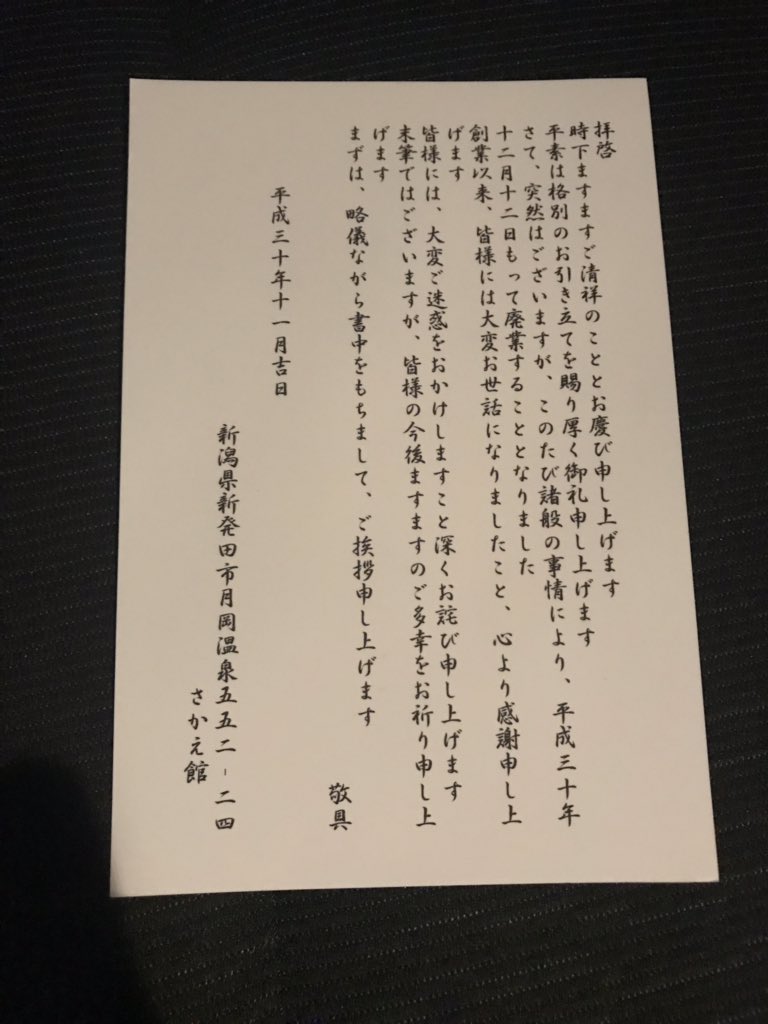 拝啓
時下ますますご清祥のこととお慶び申し上げます
平素は格別のお引き立てを賜り厚く御礼申し上げます
さて、突然はございますが、このたび諸般の事情により、平成三十年
十二月十二日もって廃業することとなりました
創業以来、皆様には大変お世話になりましたこと、心より感謝申し上
げます
皆様には、大変ご迷惑をおかけしますこと深くお詫び申し上げます
末筆ではございますが、皆様の今後ますますのご多幸をお祈り申し上
げます
まずは、略儀ながら書中をもちまして、ご挨拶申し上げます
敬具
平成三十年十一月吉日
新潟県新発田市月岡温泉五五二-二四
さかえ館